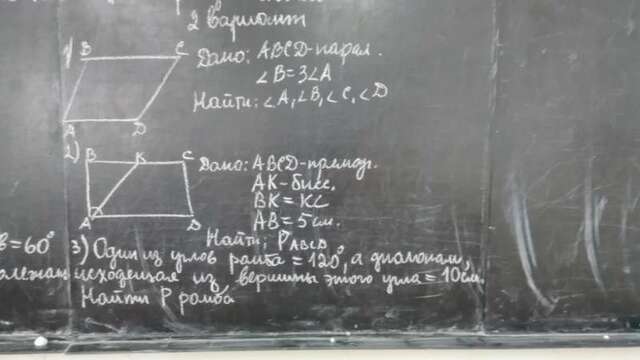 2 вариант
1) B C
Дано: ABCD-парал.
∠B=3∠A
Найти: ∠A, ∠B, ∠C, ∠D
A D
2) B K C
Дано: ABCD-прямоуг.
AK-бисс.
BK=KC
AB=5см.
A D
Найти: P ABCD
=60°
3) Один из углов ромба=120°, а диагональ,
исходящая из вершины этого угла=10см.
Найти P ромба